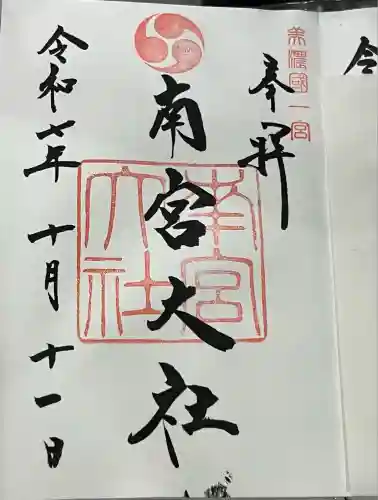 美濃國一宮
奉拝
南宮大社
南宮大社
令和七年 十月 十一日
令